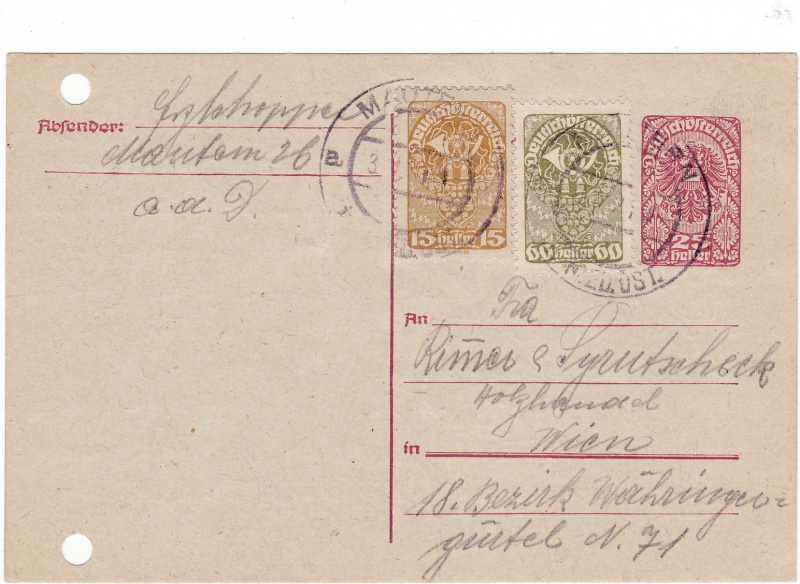 Absender:
Mautern 26
a. a. D.
MAUTE
a
Deutschösterreich
15 heller 15
Deutschösterreich
60 heller 60
Deutschösterreich
25
heller
N.ED.ÖST.
An
Fra
Rimmer & Syrutscheck
Holzhandel
in Wien
18. Bezirk Währinger-
gürtel N. 71